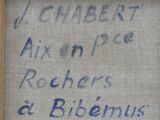 J. CHABERT
Aix en Pce
Rochers
à Bibémus